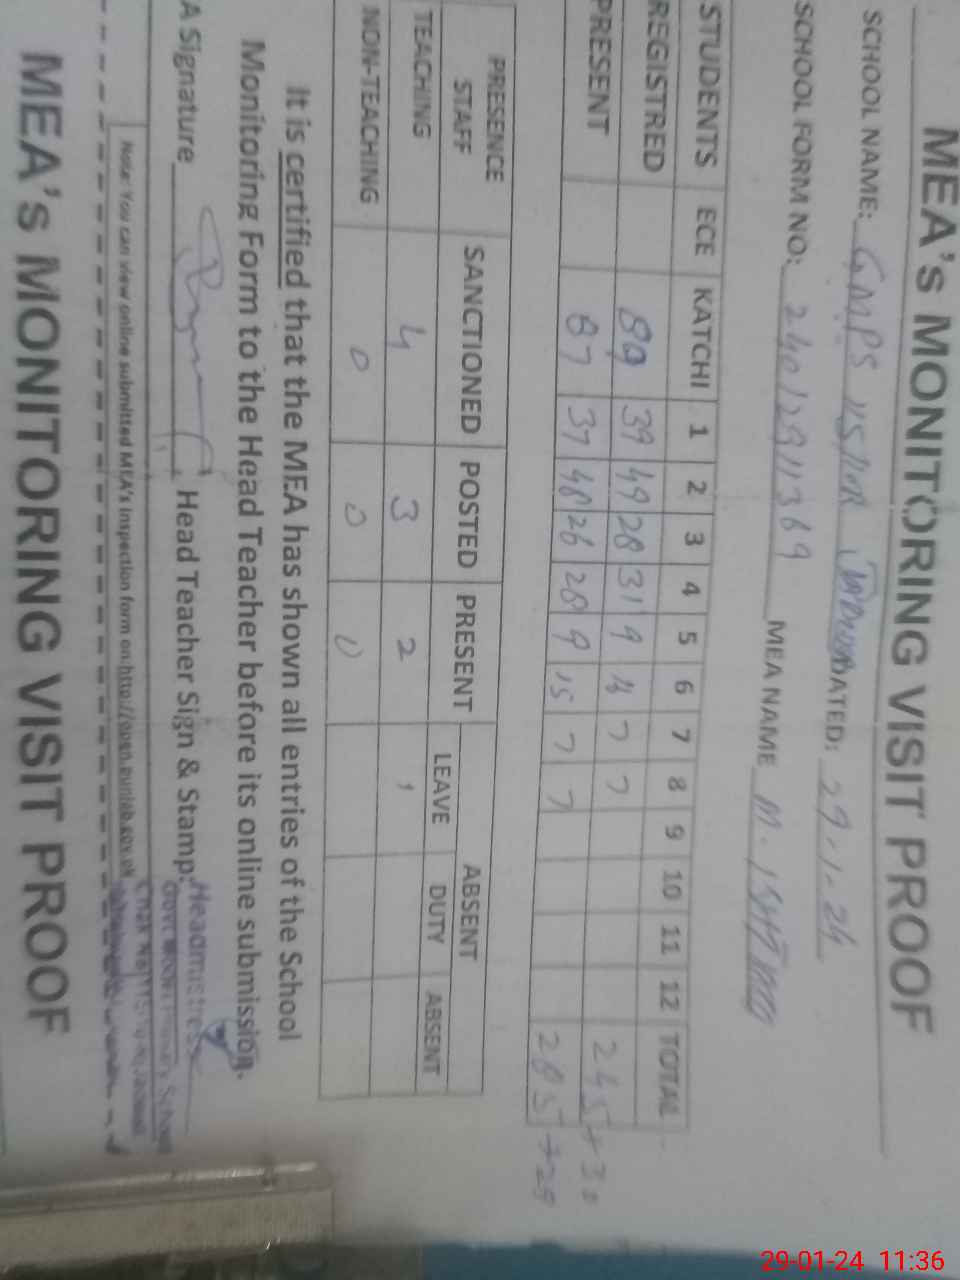 MEA's MONITORING VISIT PROOF
SCHOOL NAME: GMPS 115/10R DATED: 29-1-24
SCHOOL FORM NO: 24012911369 MEA NAME M.
STUDENTS ECE KATCHI 1 2 3 4 5 6 7 8 9 10 11 12 TOTAL
REGISTRED 89 39 49 28 31 9 7 7 245+30
PRESENT 87 37 48 26 28 9 15 7 7 285+29
PRESENCE STAFF SANCTIONED POSTED PRESENT ABSENT
LEAVE DUTY ABSENT
TEACHING 4 3 2 1
NON-TEACHING 0 0 0
It is certified that the MEA has shown all entries of the School
Monitoring Form to the Head Teacher before its online submission.
A Signature Head Teacher Sign & Stamp: Headmistress
Govt. Primary School
Chak No. 115/10-R
Note: You can view online submitted MEA's inspection form on: http://open.punjab.gov.pk
MEA's MONITORING VISIT PROOF
29-01-24 11:36